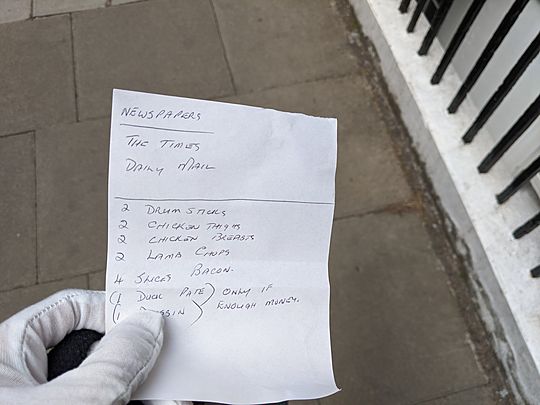 NEWSPAPERS
THE TIMES
DAILY MAIL
2 DRUM STICKS
2 CHICKEN THIGHS
2 CHICKEN BREASTS
2 LAMB CHOPS
4 SLICES BACON.
(1 DUCK PATE) ONLY IF
(1 ) ENOUGH MONEY.